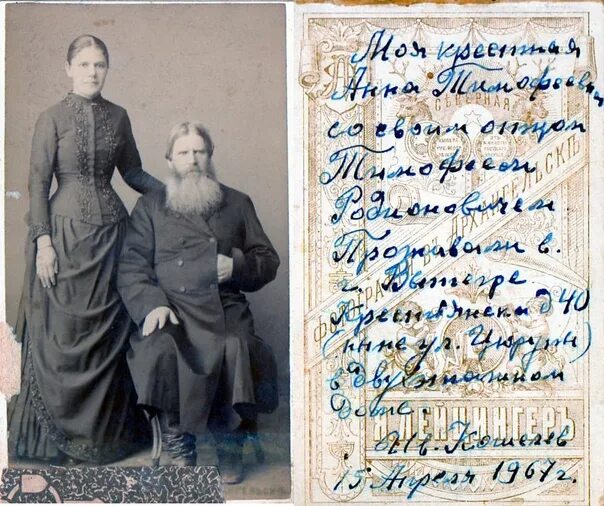 Моя крестная
Анна Тимофеевна
со своим отцом
Тимофеем
Родионовичем
Проживали в
г. Вытегре
д 40
(ныне ул. Цюрупы)
в двухэтажном
Доме.
Ив. Кошелев
15 Апреля 1967 г.
СѢВЕРНАЯ
АРХАНГЕЛЬСКѢ
ЛЕЙЦИНГЕРЪ